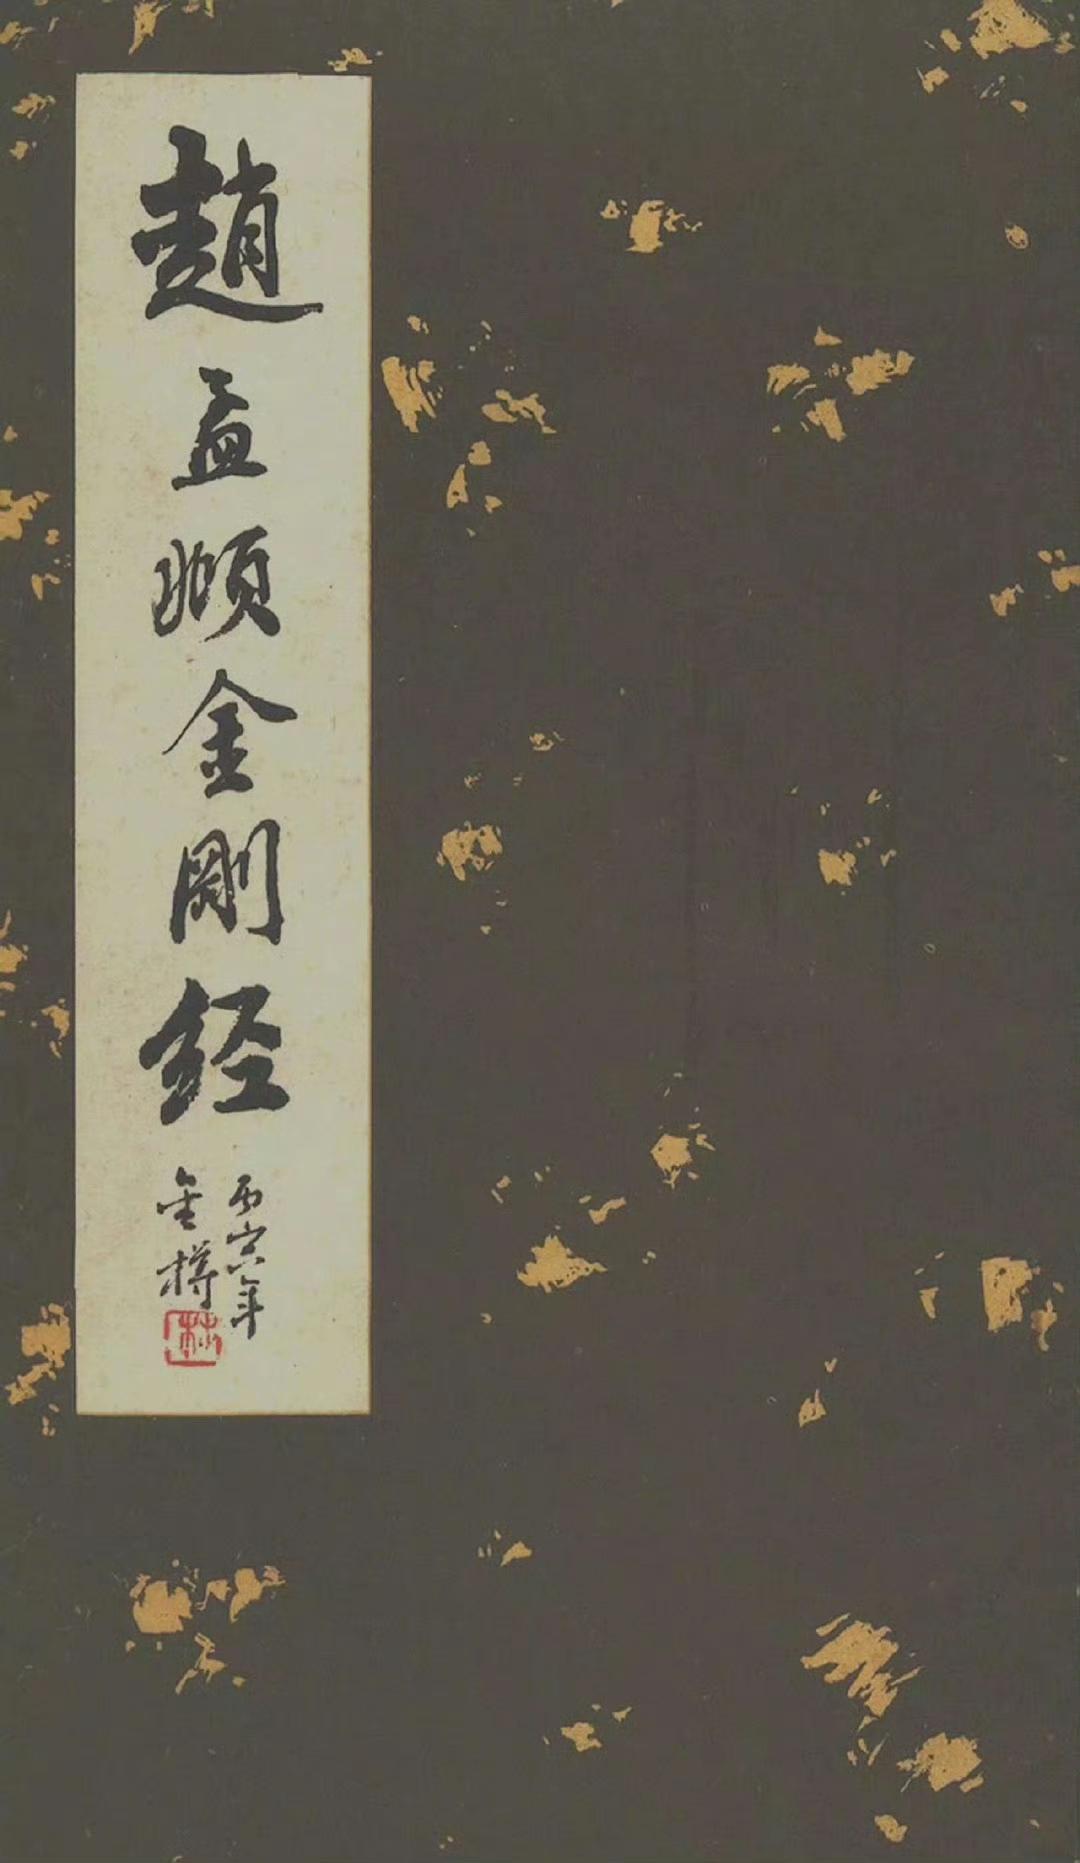 趙孟頫金剛經
丙寅年
金樽
林